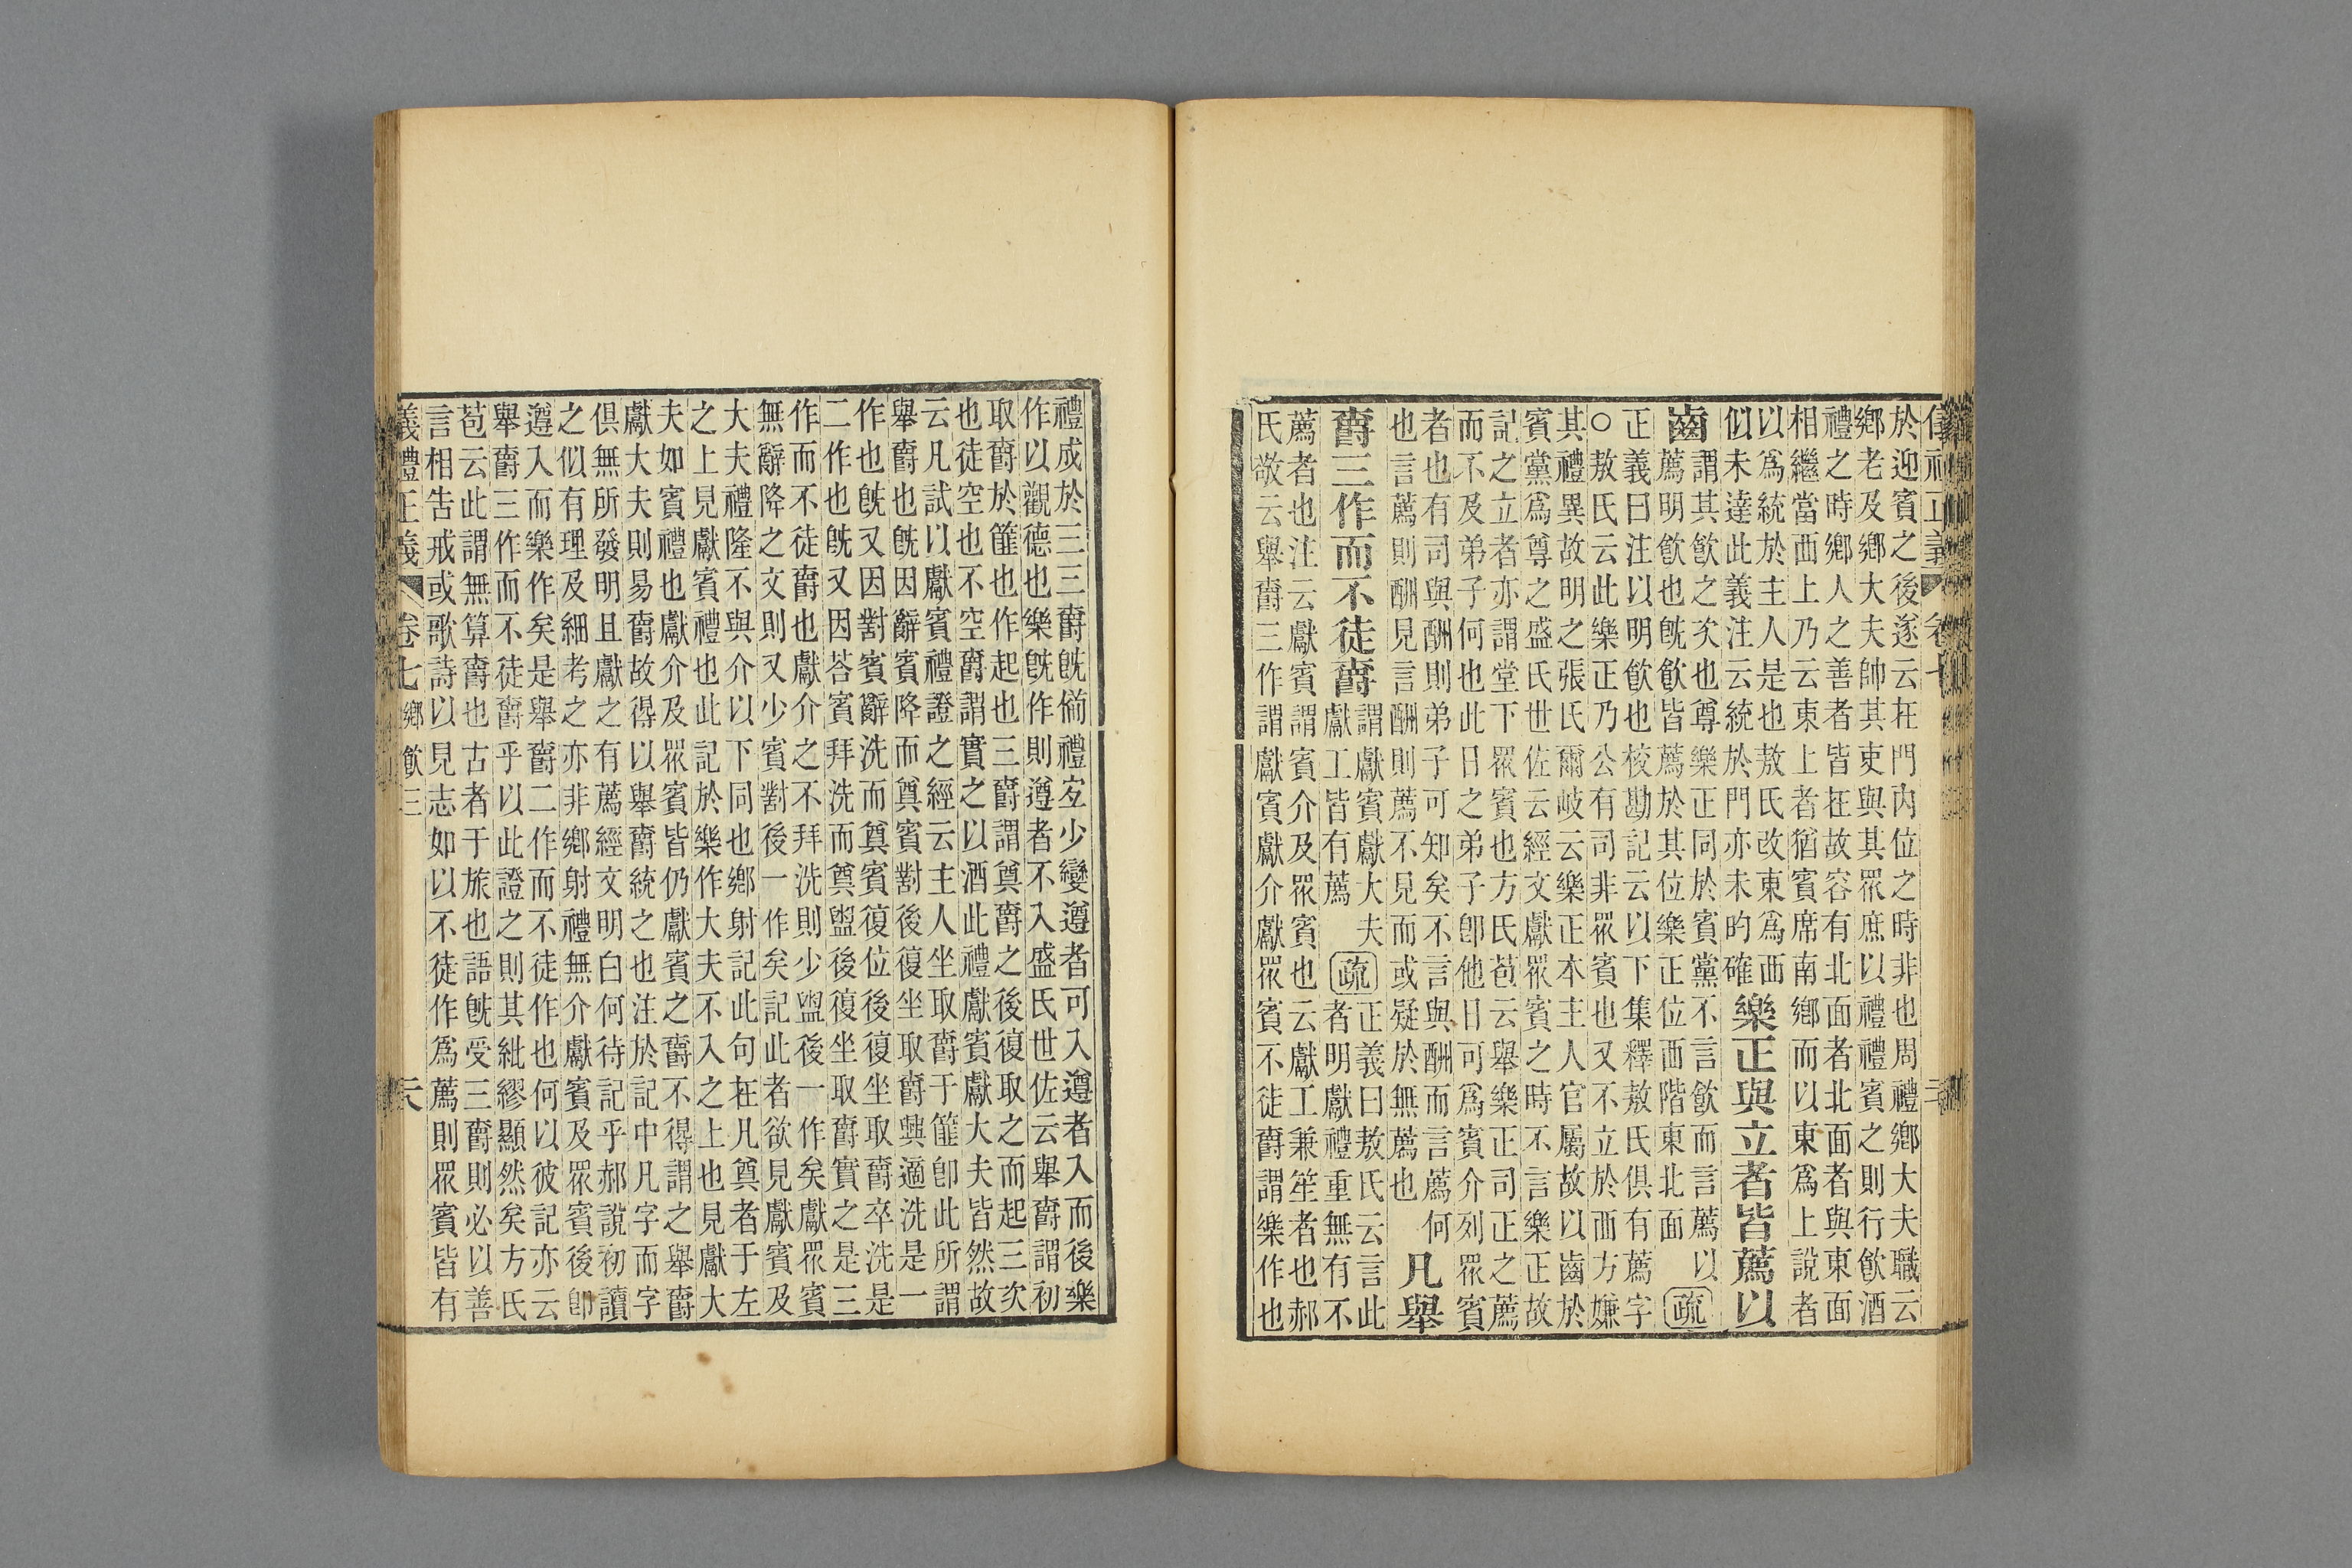 儀禮正義 卷七
於迎賓之後遂云在門內位之時非也周禮鄉大夫職云
鄉老及鄉大夫帥其吏與其眾庶以禮禮賓之則行飲酒
禮之時鄉人之善者皆在故容有北面者北面者與東面
相繼當西上乃云東上者猶賓席南鄉而以東爲上說者
以爲統於主人是也敖氏改東爲西
似未達此義注云統於門亦未昀確
樂正與立者皆薦以
齒
謂其飲之次也尊樂正同於賓黨不言飲而言薦以
薦明飲也旣飲皆薦於其位樂正位西階東北面
疏
正義曰注以明飲也校勘記云以下集釋敖氏俱有薦字
○敖氏云此樂正乃公有司非眾賓也又不立於西方嫌
其禮異故明之張氏爾岐云樂正本主人官屬故以齒於
賓黨爲尊之盛氏世佐云經文獻眾賓之時不言樂正故
記之立者亦謂堂下眾賓也方氏苞云舉樂正司正之薦
而不及弟子何也此日之弟子卽他日可爲賓介列眾賓
者也有司與酬則弟子可知矣不言與酬而言薦何
也言薦則酬見言酬則薦不見而或疑於無薦也
凡舉
爵三作而不徒爵
謂獻賓獻大夫
獻工皆有薦
疏
正義曰敖氏云言此
者明獻禮重無有不
薦者也注云獻賓謂賓介及眾賓也云獻工兼笙者也郝
氏敬云舉爵三作謂獻賓獻介獻眾賓不徒爵謂樂作也
禮成於三三爵旣備禮宐少變遵者可入遵者入而後樂
作以觀德也樂旣作則遵者不入盛氏世佐云舉爵謂初
取爵於篚也作起也三爵謂奠爵之後復取之而起三次
也徒空也不空爵謂實之以酒此禮獻賓獻大夫皆然故
云凡試以獻賓禮證之經云主人坐取爵于篚卽此所謂
舉爵也旣因辭賓降而奠賓對後復坐取爵興適洗是一
作也旣又因對賓辭洗而奠賓復位後復坐取爵卒洗是
二作也旣又因荅賓拜洗而奠盥後復坐取爵實之是三
作而不徒爵也獻介之不拜洗則少盥後一作矣獻眾賓
無辭降之文則又少賓對後一作矣記此者欲見獻賓及
大夫禮隆不與介以下同也鄉射記此句在凡奠者于左
之上見獻賓禮也此記於樂作大夫不入之上也見獻大
夫如賓禮也獻介及眾賓皆仍獻賓之爵不得謂之舉爵
獻大夫則易爵故得以舉爵統之也注於記中凡字而字
俱無所發明且獻之有薦經文明白何待記乎郝說初讀
之似有理及細考之亦非鄉射禮無介獻賓及眾賓後卽
遵入而樂作矣是舉爵二作而不徒作也何以彼記亦云
舉爵三作而不徒爵乎以此證之則其紕繆顯然矣方氏
苞云此謂無算爵也古者于旅也語旣受三爵則必以善
言相吿戒或歌詩以見志如以不徒作爲薦則眾賓皆有
義禮正義 卷七 鄉飲三